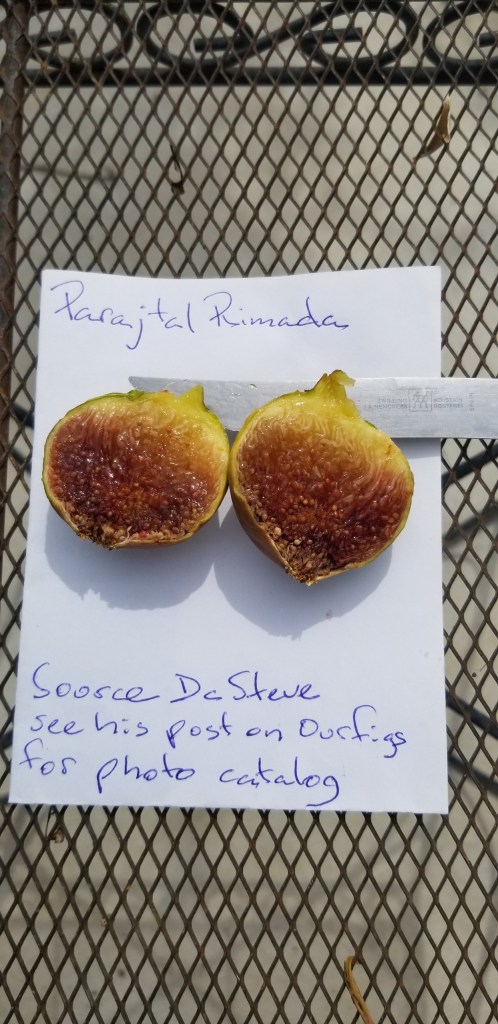 Parajtal Rimada
Source DaSteve
see his post on Ourfigs
for photo catalog